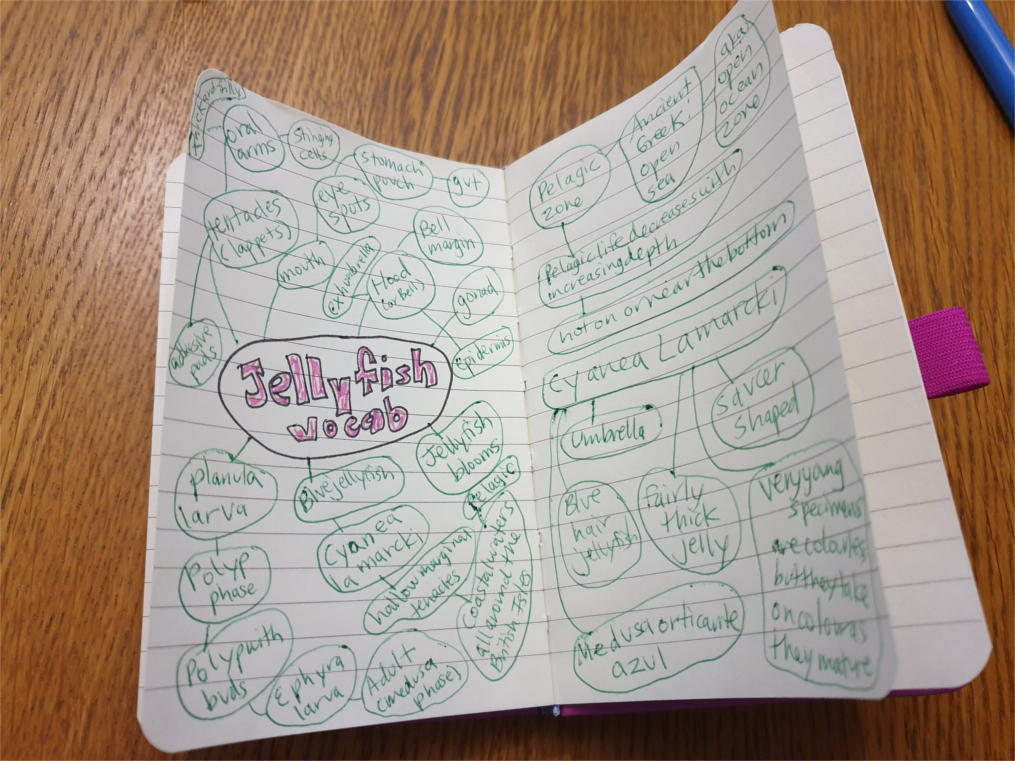 thick and frilly
oral
arms
stinging
cells
stomach
pouch
gut
eye
spots
tentacles
(lappets)
Bell
margin
mouth
exhumbrella
Hood
(or Bell)
gonad
adhesive
pads
Epidermis
Jellyfish
vocab
Jellyfish
blooms
planula
larva
Blue jellyfish
Pelagic
Cyanea
lamarcki
hallow marginal
tenacles
coastal waters
all around the
British Isles
Polyp
phase
Polyp with
buds
Ephyra
larva
Adult
(medusa
phase)
Pelagic
zone
Ancient
Greek:
open
sea
aka
open
ocean
zone
Pelagic life decreases with
increasing depth
not on or near the bottom
Cyanea Lamarcki
Umbrella
saucer
shaped
Blue
hair
jellyfish
Fairly
thick
jelly
Very young
specimens
are colourles
but they take
on colour as
they mature
Medusa orticante
azul